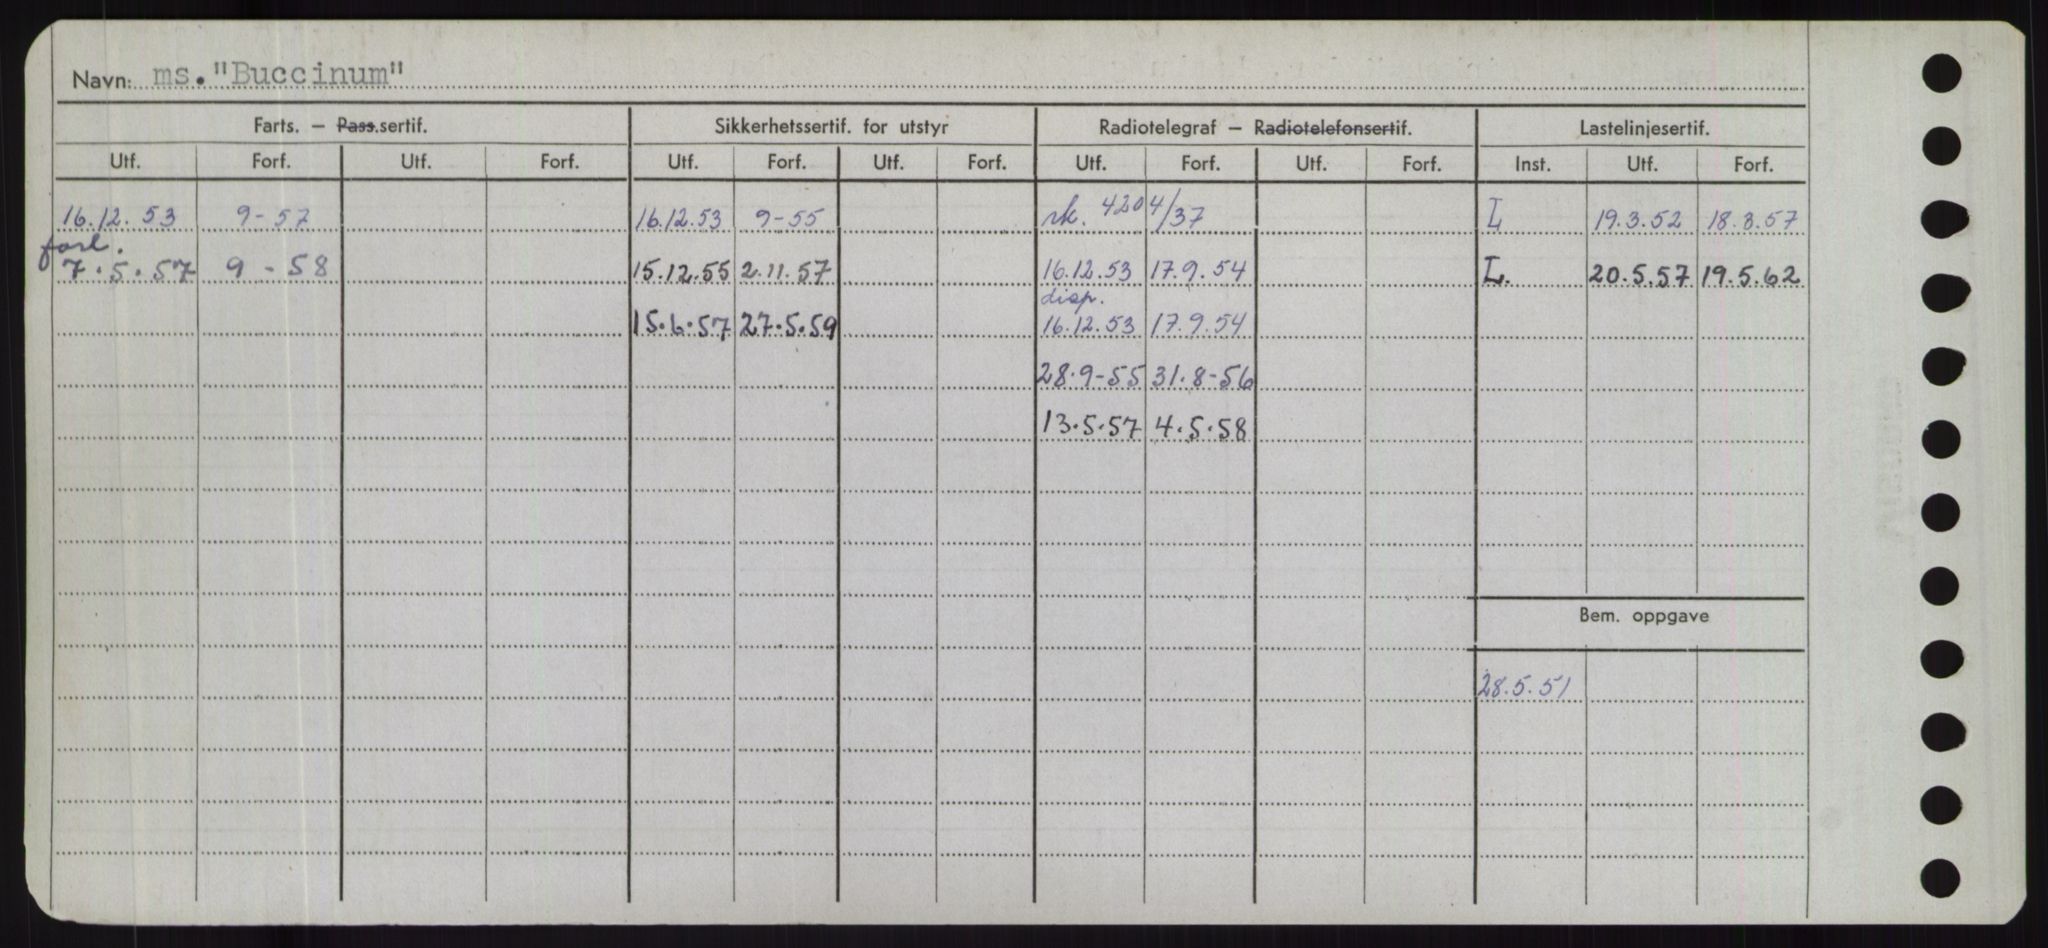 Navn: ms. "Buccinum"
Farts. – Pass.sertif. Sikkerhetssertif. for utstyr Radiotelegraf – Radiotelefonsertif. Lastelinjesertif.
Utf. Forf. Utf. Forf. Utf. Forf. Utf. Forf. Utf. Forf. Utf. Forf. Inst. Utf. Forf.
16.12.53 9-57 16.12.53 9-55 rk. 4204/37 L 19.3.52 18.3.57
forl.
7.5.57 9-58 15.12.55 2.11.57 16.12.53 17.9.54 L. 20.5.57 19.5.62
disp.
15.6.57 27.5.59 16.12.53 17.9.54
28.9-55 31.8-56
13.5.57 4.5.58
Bem. oppgave
28.5.51